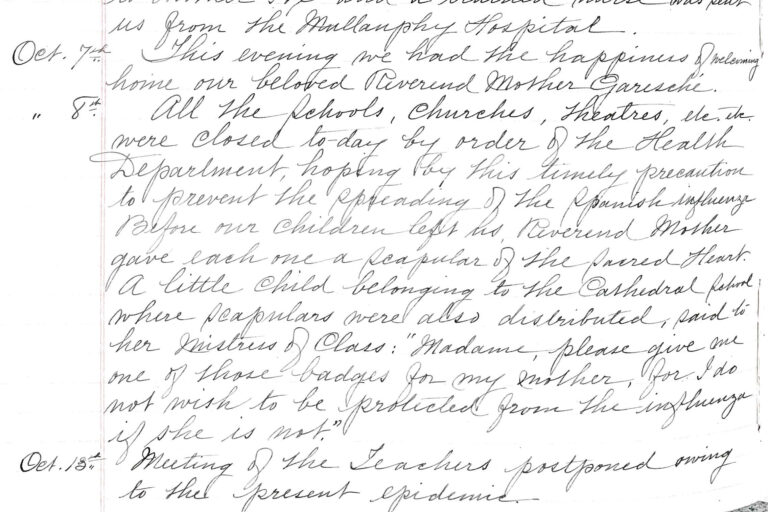 us from the Mullanphy Hospital.
Oct. 7th This evening we had the happiness of welcoming
home our beloved Reverend Mother Garesché.
" 8th All the schools, churches, theatres, etc. etc.
were closed to-day by order of the Health
Department, hoping by this timely precaution
to prevent the spreading of the Spanish influenza
Before our children left us, Reverend Mother
gave each one a scapular of the Sacred Heart.
A little child belonging to the Cathedral School
where scapulars were also distributed, said to
her Mistress of Class: "Madame, please give me
one of those badges for my mother, for I do
not wish to be protected from the influenza
if she is not."
Oct. 13th Meeting of the Teachers postponed owing
to the present epidemic.